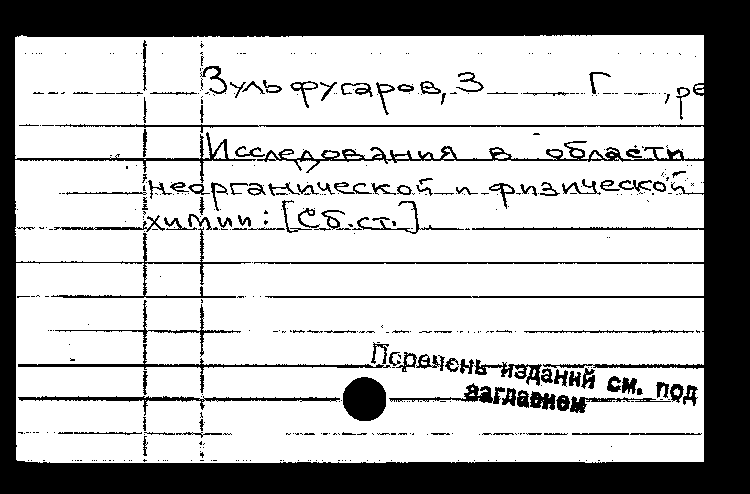 Зульфугаров, З Г , ре
Исследования в области
неорганической и физической
химии: [Сб. ст.].
Перечень изданий см. под
заглавием